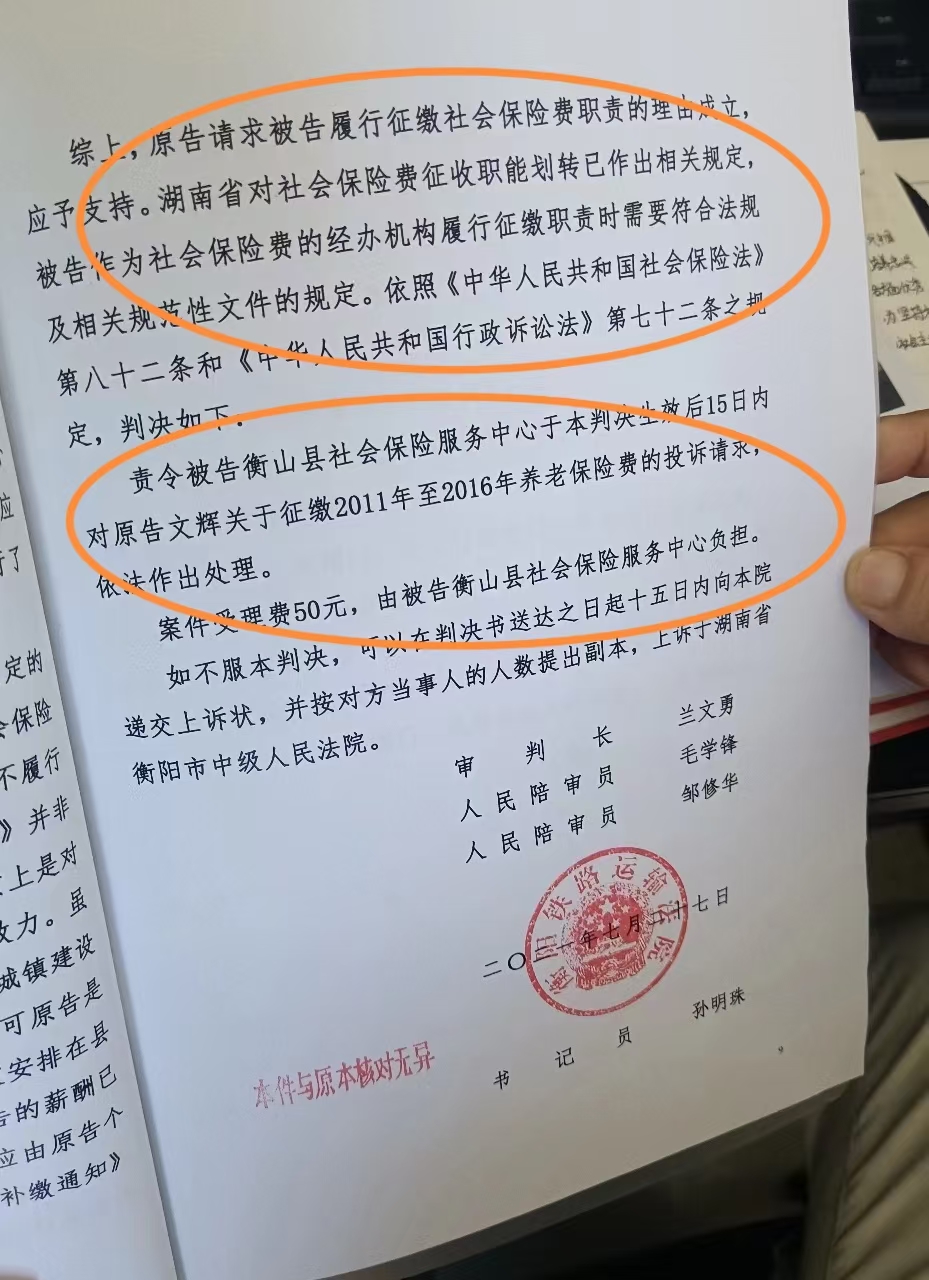 综上，原告请求被告履行征缴社会保险费职责的理由成立，
应予支持。湖南省对社会保险费征收职能划转已作出相关规定，
被告作为社会保险费的经办机构履行征缴职责时需要符合法规
及相关规范性文件的规定。依照《中华人民共和国社会保险法》
第八十二条和《中华人民共和国行政诉讼法》第七十二条之规
定，判决如下：
责令被告衡山县社会保险服务中心于本判决生效后15日内
对原告文辉关于征缴2011年至2016年养老保险费的投诉请求，
依法作出处理。
案件受理费50元，由被告衡山县社会保险服务中心负担。
如不服本判决，可以在判决书送达之日起十五日内向本院
递交上诉状，并按对方当事人的人数提出副本，上诉于湖南省
衡阳市中级人民法院。
审判长 兰文勇
人民陪审员 毛学锋
人民陪审员 邹修华
二〇二一年七月二十七日
衡阳铁路运输法院
书记员 孙明珠
本件与原本核对无异
9
应
行了
定的
会保险
不履行
》并非
上是对
效力。虽
城镇建设
可原告是
安排在县
告的薪酬已
应由原告个
补缴通知》